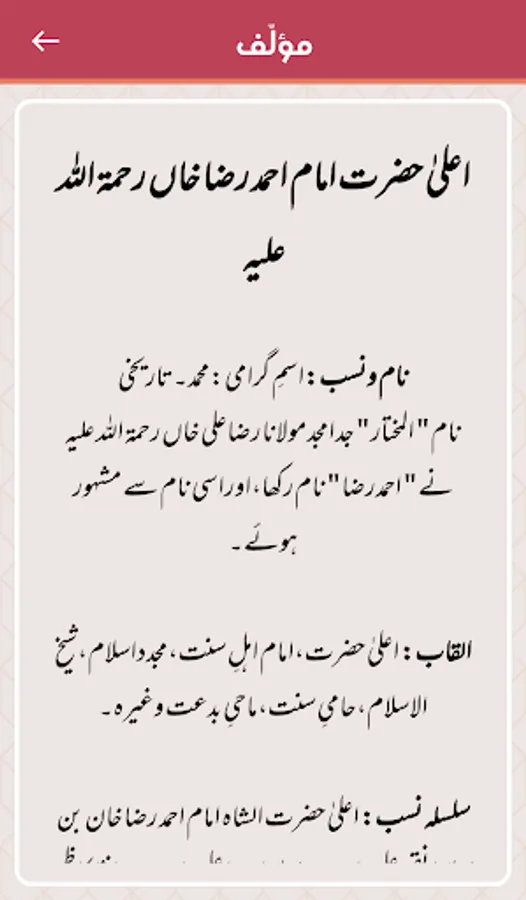 مؤلّف
اعلیٰ حضرت امام احمد رضا خاں رحمۃ اللہ
علیہ
نام و نسب: اسمِ گرامی: محمد۔ تاریخی
نام "المختار" جد امجد مولانا رضا علی خاں رحمۃ اللہ علیہ
نے "احمد رضا" نام رکھا، اور اسی نام سے مشہور
ہوئے۔
القاب: اعلیٰ حضرت، امام اہلِ سنت، مجدد اسلام، شیخ
الاسلام، حامیِ سنت، ماحیِ بدعت وغیرہ۔
سلسلہ نسب: اعلیٰ حضرت الشاہ امام احمد رضا خان بن